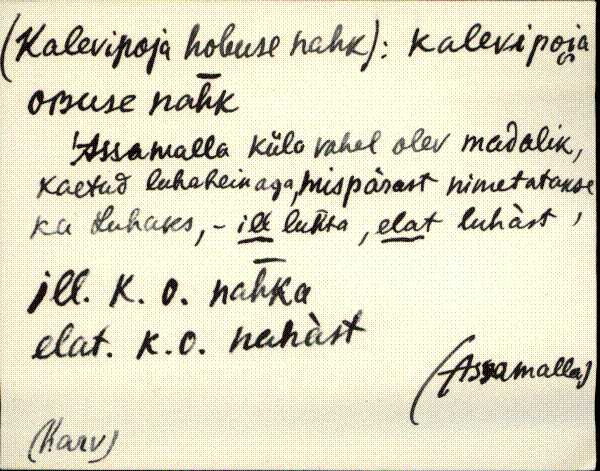 (Kalevipoja hobuse nahk): kalevipoja
obuse nah̄k
Assamalla küla vahel olev madalik,
kaetud luhaheinaga, mispärast nimetatakse
ka Luhaks, - ill luh̄ta, elat luhàst,
ill. K. O. nah̄ka
elat. K. O. nahàst
(Assamalla)
(Karv)